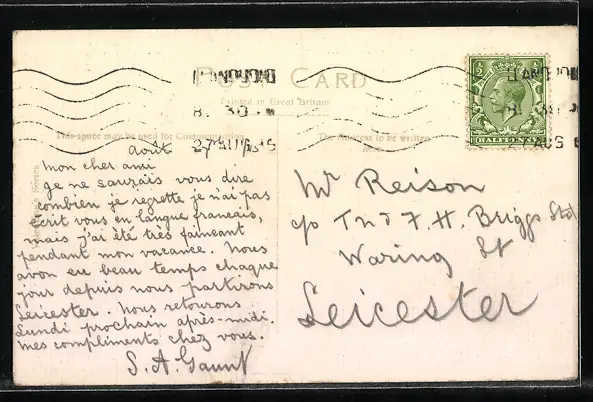 POST CARD
Printed in Great Britain
This space may be used for Communication
The Address to be written
LLANDUDNO
8. 30
27 AUG 15
LLANDUDNO
27 AUG
½ ½
HALFPENNY
Août
mon cher ami
ge ne saurais vous dire
combien je regrette je n'ai pas
écrit vous en langue francais,
mais j'ai été très faineant
pendant mon vacance. Nous
avon eu beau temps chaque
jour depuis nous partirons
Leicester. Nous retourons
Lundi prochain après-midi.
mes compliments chez vous.
S. A. Gaunt
Mr Reison
c/o T. H. Briggs Ltd
Waring St
Leicester